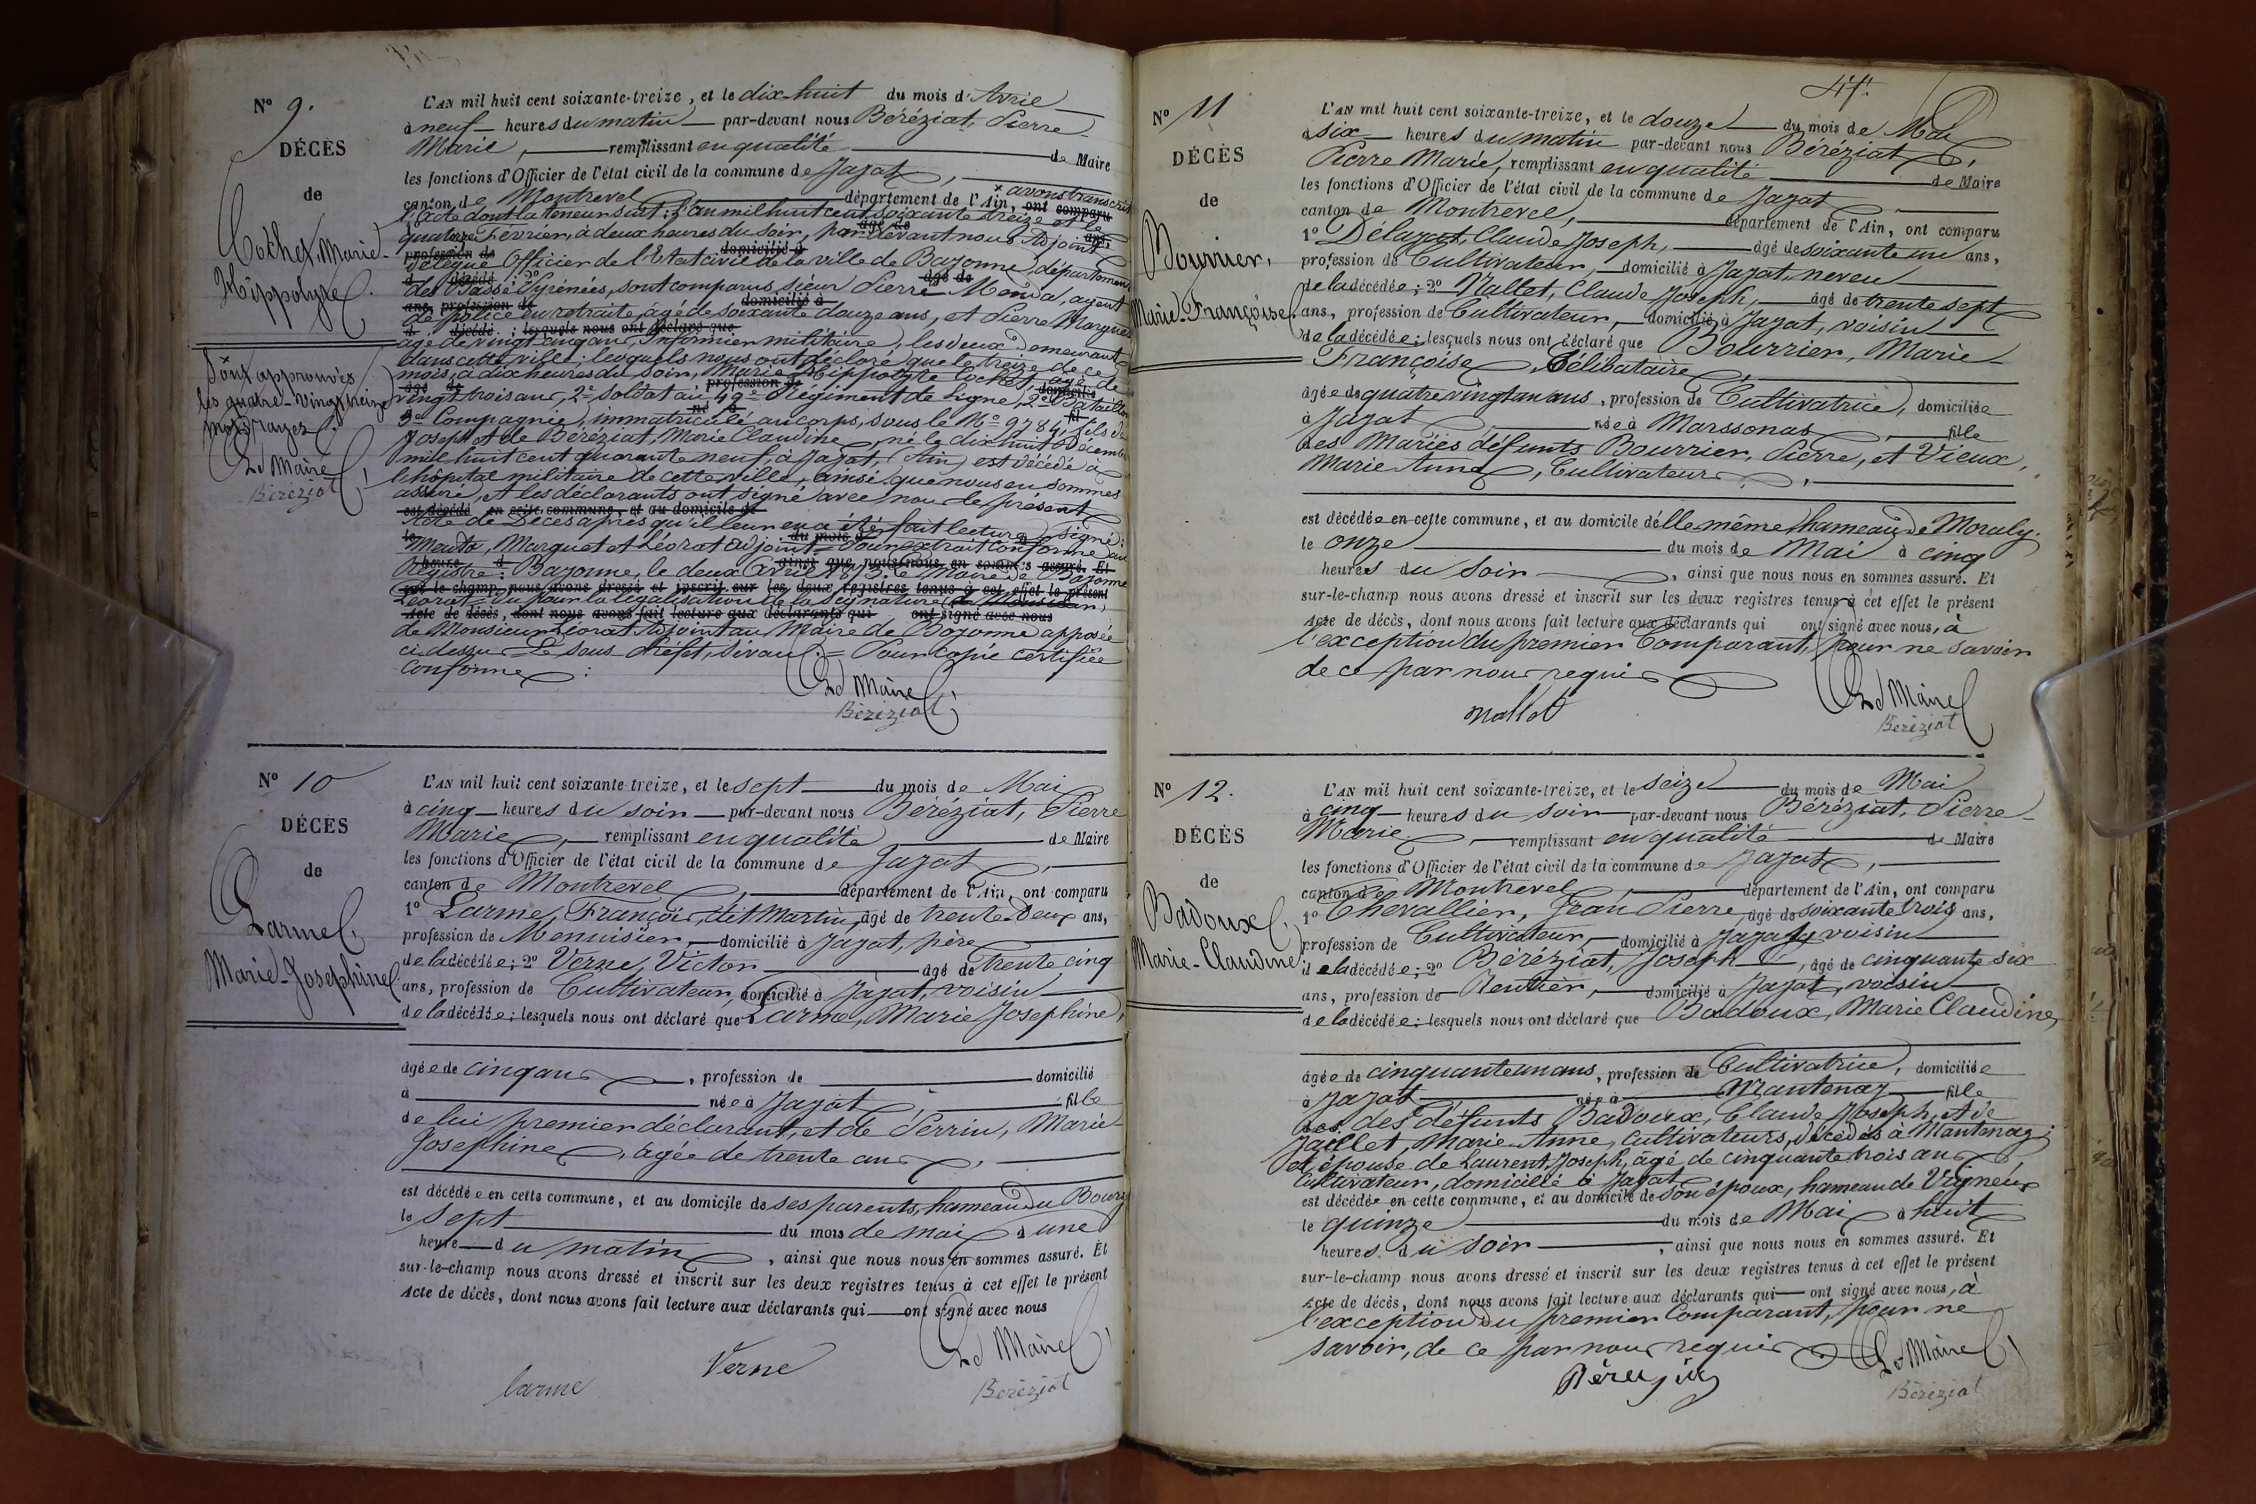 N° 9.
DÉCÈS
de
Cochet, Marie-
Hippolyte.
× Sont approuvés
les quatre-vingt treize
mots rayés.
Le Maire
Béréziat
L'AN mil huit cent soixante-treize, et le dix-huit du mois d'Avril
à neuf heures du matin par-devant nous Béréziat, Pierre
Marie, remplissant en qualité de Maire
les fonctions d'Officier de l'état civil de la commune de Jayat,
canton de Montrevel département de l'Ain, ont comparu × avons transcrit
l'acte dont la teneur suit: L'an mil huit cent soixante treize et le
quatorze Février, à deux heures du soir, par-devant nous Adjoint
délégué Officier de l'Etat civil de la ville de Bayonne, département
des Basses Pyrénées, sont comparus sieur Pierre Menda, agent
de police en retraite, âgé de soixante douze ans, et Pierre Marquet
âgé de vingt cinq ans, Infirmier militaire, les deux demeurant
dans cette ville; lesquels nous ont déclaré que le treize de ce
mois, à dix heures du soir, Marie Hippolyte Cochet, âgé de
vingt trois ans, 2e soldat au 49e Régiment de Ligne, 2e Bataillon
3e Compagnie, immatriculé au corps, sous le N° 9784, fils de
Joseph et de Béréziat, Marie Claudine, né le dix huit Décembre
mil huit cent quarante neuf, à Jayat (Ain) est décédé à
l'hôpital militaire de cette ville, ainsi que nous en sommes
assuré, et les déclarants ont signé avec nous le présent
Acte de Décès après qu'il leur en a été fait lecture, signé:
Menda, Marquet et Léorat adjoint = Pour extrait conforme au
Registre: Bayonne, le deux Avril 1873. Le Maire de Bayonne
Léorat = Vu pour la légalisation de la signature
de Monsieur Léorat Adjoint au Maire de Bayonne apposée
ci-dessus Le Sous-Préfet, = Pour copie certifiée
conforme:
Le Maire
Béréziat
N° 10
DÉCÈS
de
Larme,
Marie-Josephine
L'AN mil huit cent soixante-treize, et le sept du mois de Mai
à cinq heures du soir par-devant nous Béréziat, Pierre
Marie, remplissant en qualité de Maire
les fonctions d'Officier de l'état civil de la commune de Jayat,
canton de Montrevel, département de l'Ain, ont comparu
1° Larme, François, dit Martin, âgé de trente-deux ans,
profession de Menuisier, domicilié à Jayat, père
de la décédée; 2° Verne, Victor âgé de trente cinq
ans, profession de Cultivateur, domicilié à Jayat, voisin
de la décédée; lesquels nous ont déclaré que Larme, Marie Josephine,
âgée de cinq ans, profession de domicilié
à née à Jayat fille
de lui premier déclarant, et de Perrin, Marie
Josephine, âgée de trente ans,
est décédée en cette commune, et au domicile de ses parents, hameau du Bourg
le sept du mois de mai à une
heure du matin, ainsi que nous nous en sommes assuré. Et
sur-le-champ nous avons dressé et inscrit sur les deux registres tenus à cet effet le présent
Acte de décès, dont nous avons fait lecture aux déclarants qui ont signé avec nous
Le Maire
Verne
larme
Béréziat
47.
N° 11
DÉCÈS
de
Bourrier,
Marie-Françoise.
L'AN mil huit cent soixante-treize, et le douze du mois de Mai
à six heures du matin par-devant nous Béréziat,
Pierre Marie, remplissant en qualité de Maire
les fonctions d'Officier de l'état civil de la commune de Jayat
canton de Montrevel, département de l'Ain, ont comparu
1° Délayat, Claude Joseph, âgé de soixante un ans,
profession de Cultivateur, domicilié à Jayat, neveu
de la décédée; 2° Mallet, Claude Joseph, âgé de trente sept
ans, profession de Cultivateur, domicilié à Jayat, voisin
de la décédée; lesquels nous ont déclaré que Bourrier, Marie
Françoise, Célibataire,
âgée de quatre vingt un ans, profession de Cultivatrice, domiciliée
à Jayat née à Marssonas, fille
des Mariés défunts Bourrier, Pierre, et Vieux,
Marie Anne, Cultivateurs,
est décédée en cette commune, et au domicile d'elle même, hameau de Moraly.
le onze du mois de Mai à cinq
heures du soir, ainsi que nous nous en sommes assuré. Et
sur-le-champ nous avons dressé et inscrit sur les deux registres tenus à cet effet le présent
Acte de décès, dont nous avons fait lecture aux déclarants qui ont signé avec nous, à
l'exception du premier Comparant, pour ne savoir
de ce par nous requis
Le Maire
mallet
Béréziat
N° 12.
DÉCÈS
de
Badoux,
Marie-Claudine
L'AN mil huit cent soixante-treize, et le seize du mois de Mai
à cinq heures du soir par-devant nous Béréziat, Pierre
Marie, remplissant en qualité de Maire
les fonctions d'Officier de l'état civil de la commune de Jayat,
canton de Montrevel, département de l'Ain, ont comparu
1° Chevallier, Jean Pierre, âgé de soixante trois ans,
profession de Cultivateur, domicilié à Jayat, voisin
de la décédée; 2° Béréziat, Joseph, âgé de cinquante six
ans, profession de Rentier, domicilié à Jayat, voisin
de la décédée; lesquels nous ont déclaré que Badoux, Marie Claudine,
âgée de cinquante un ans, profession de Cultivatrice, domiciliée
à Jayat née à Mantenay fille
des défunts Badoux, Claude Joseph, et de
Jaillet, Marie Anne, cultivateurs, décédés à Mantenay;
et épouse de Laurent, Joseph, âgé de cinquante trois ans
Cultivateur, domicilié à Jayat
est décédée en cette commune, et au domicile de son époux, hameau de Vigneux
le quinze du mois de Mai à huit
heures du soir, ainsi que nous nous en sommes assuré. Et
sur-le-champ nous avons dressé et inscrit sur les deux registres tenus à cet effet le présent
Acte de décès, dont nous avons fait lecture aux déclarants qui ont signé avec nous, à
l'exception du premier Comparant, pour ne
savoir, de ce par nous requis. Le Maire
Béréziat